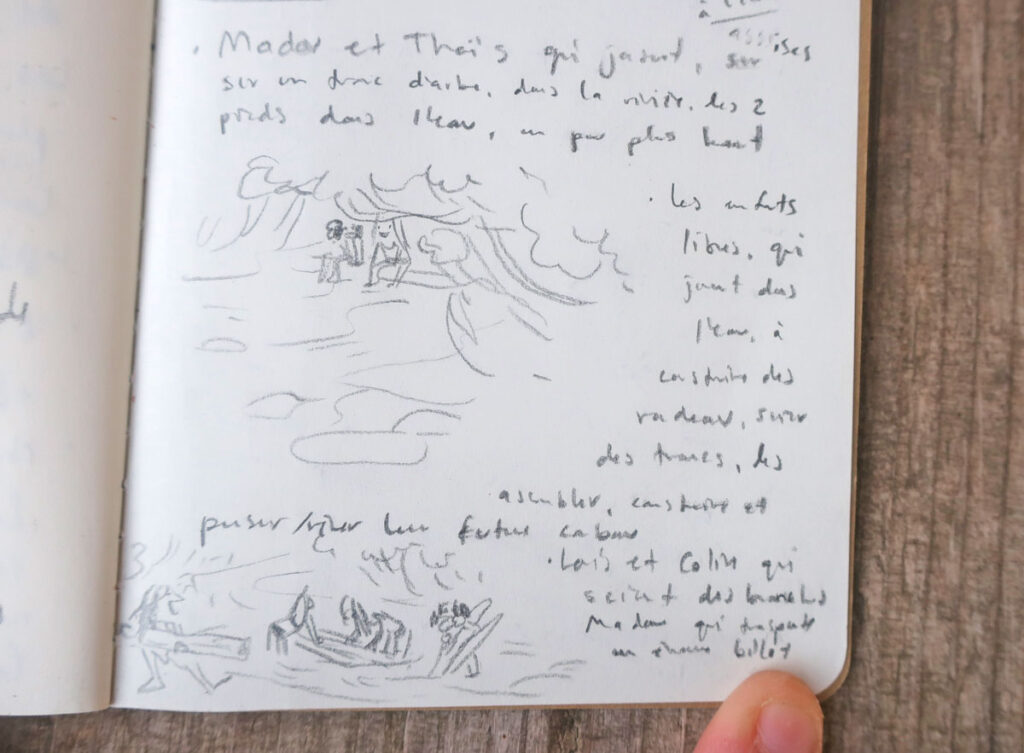 à
assises
. Mador et Thaïs qui jasent, sur
sur un tronc d'arbre, dans la rivière, les 2
pieds dans l'eau, un peu plus haut
. Les enfants
libres, qui
jouent dans
l'eau, à
construire des
radeau, scier
des troncs, les
assembler, construire et
penser/rêver leur future cabane
. Loïs et Colin qui
scient des branches
Mador qui transporte
un énorme billot